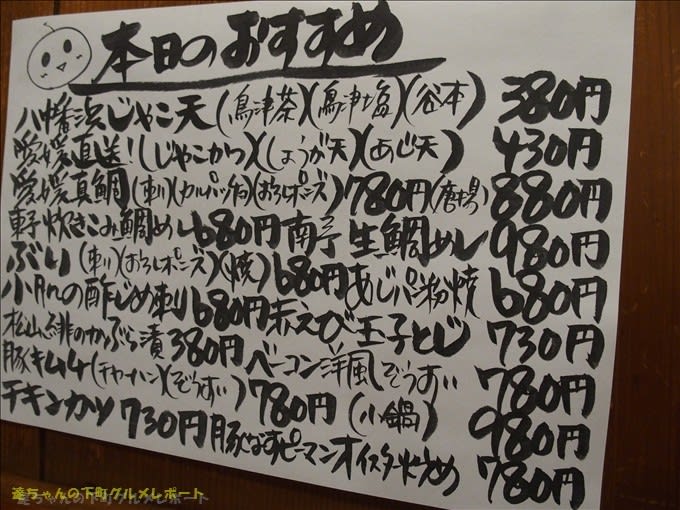 本日のおすすめ
八幡浜じゃこ天(鳥津茶)(鳥津塩)(谷本) 380円
愛媛直送!(じゃこかつ)(しょうが天)(あじ天) 430円
愛媛真鯛(刺)(カルパッチョ)(おろしポンズ)780円(唐揚)880円
東予炊きこみ鯛めし680円南予生鯛めし980円
ぶり(刺)(おろしポンズ)(焼)680円あじパン粉焼680円
小肌の酢じめ刺680円赤えび玉子とじ730円
松山緋のかぶら漬380円ベーコン洋風ぞうすい780円
豚キムチ(チャーハン)(ぞうすい)780円(小鍋)980円
チキンカツ730円豚なすピーマンオイスター炒め780円
達ちゃんの下町グルメレポート